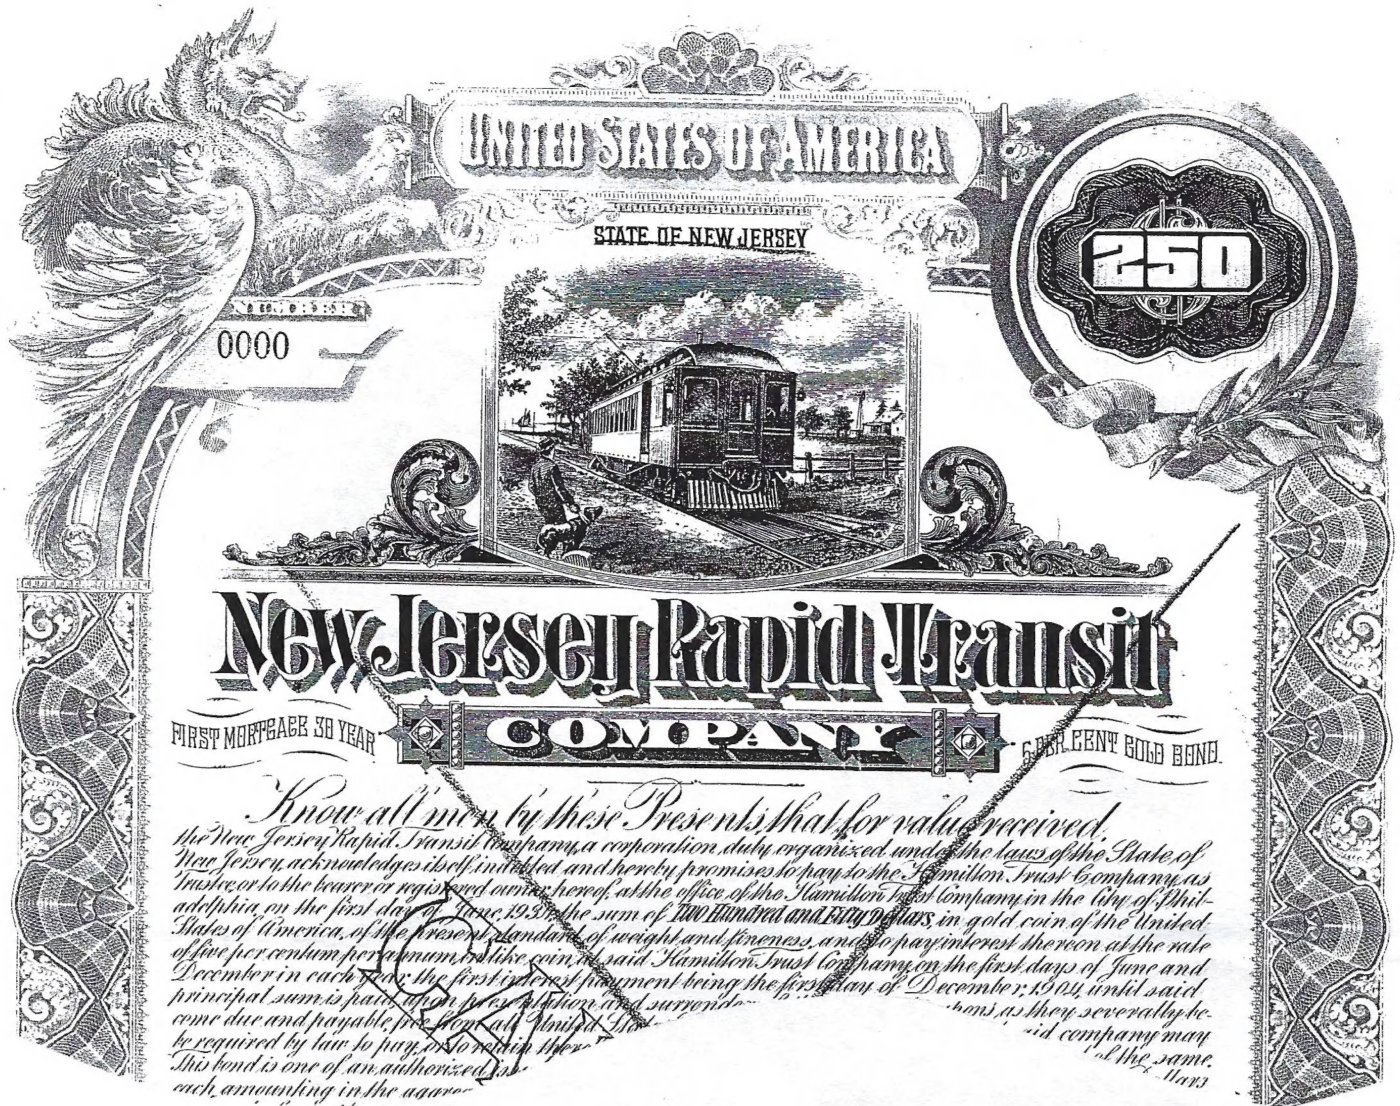 UNITED STATES OF AMERICA
STATE OF NEW JERSEY
250
NUMBER
0000
New Jersey Rapid Transit
COMPANY
FIRST MORTGAGE 30 YEAR
5 PER CENT GOLD BOND.
Know all men by these Presents, that for value received,
the New Jersey Rapid Transit Company, a corporation, duly organized under the laws of the State of
New Jersey, acknowledges itself indebted and hereby promises to pay to the Hamilton Trust Company, as
Trustee, or to the bearer, or registered owner hereof, at the office of the Hamilton Trust Company, in the City of Phil-
adelphia, on the first day of June, 1934, the sum of Two Hundred and Fifty Dollars, in gold coin of the United
States of America, of the present standard of weight and fineness, and to pay interest thereon at the rate
of five per centum per annum, in like coin, at said Hamilton Trust Company, on the first days of June and
December in each year the first interest payment being the first day of December, 1904, until said
principal sum is paid, upon presentation and surrender as they severally be-
come due and payable, free from all United company may
be required by law to pay, or to retain of the same.
This bond is one of an authorized
each amounting in the